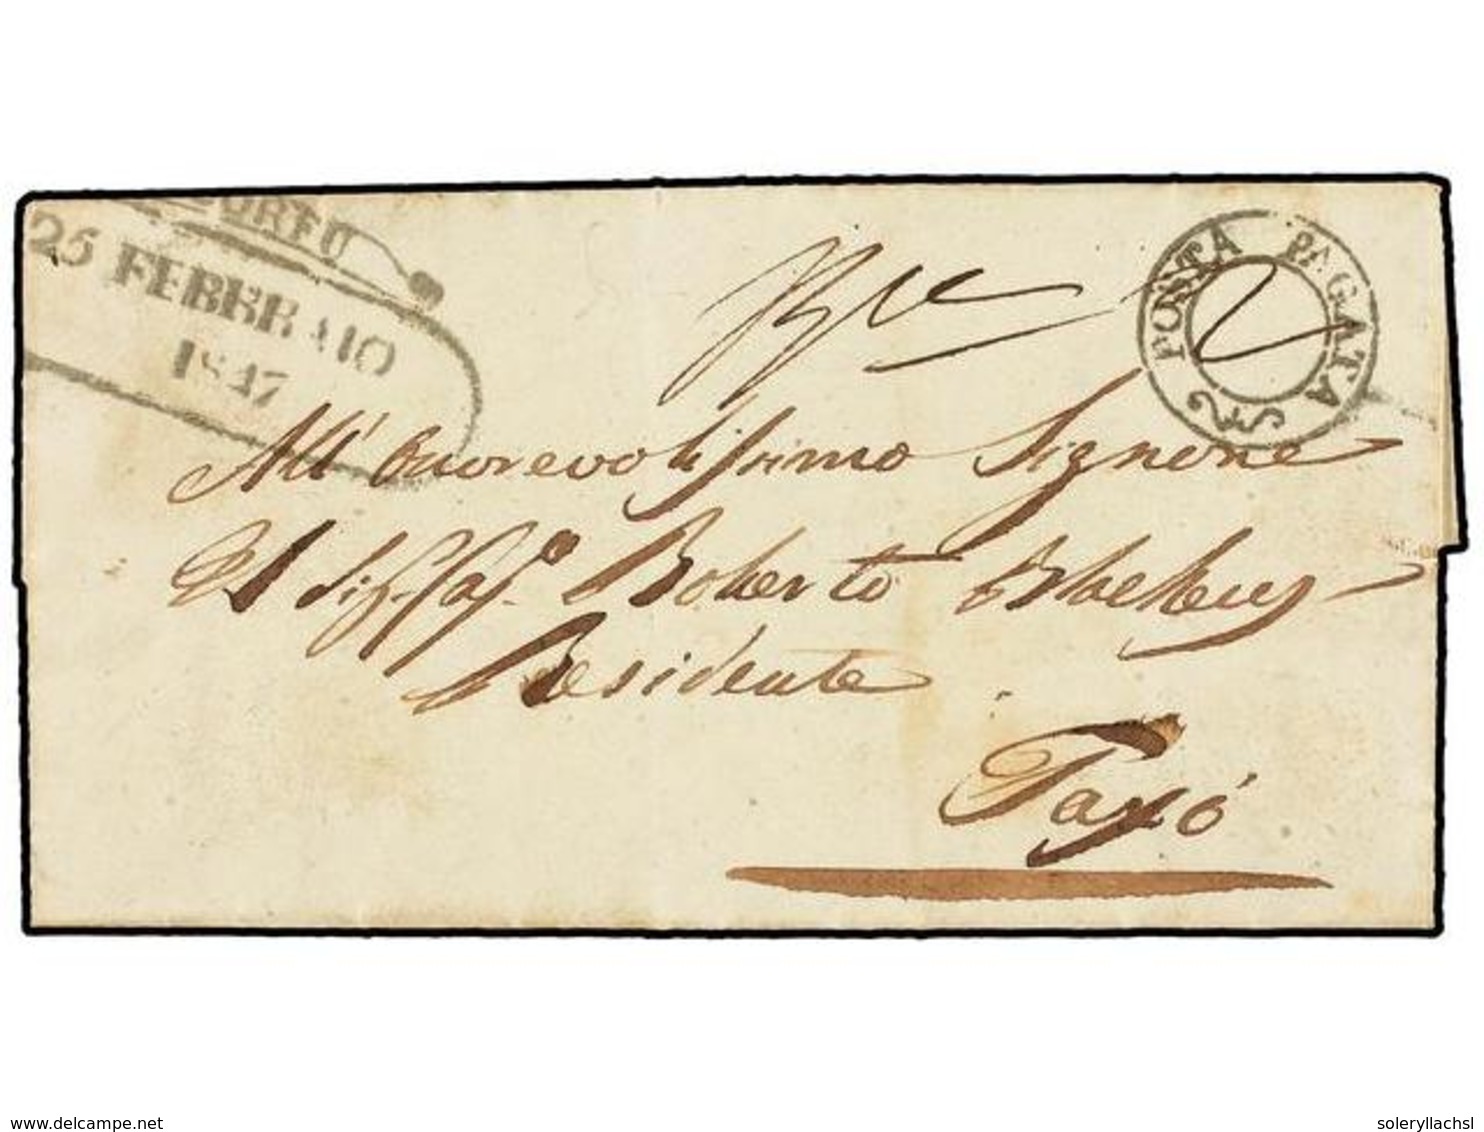 CORFU
25 FEBBRAIO
1847
POSTA PAGATA
2
All' Onorevolissimo Signore
Il Sig. Roberto
Residente
Paxó
delcampe.net
soleryllachsl